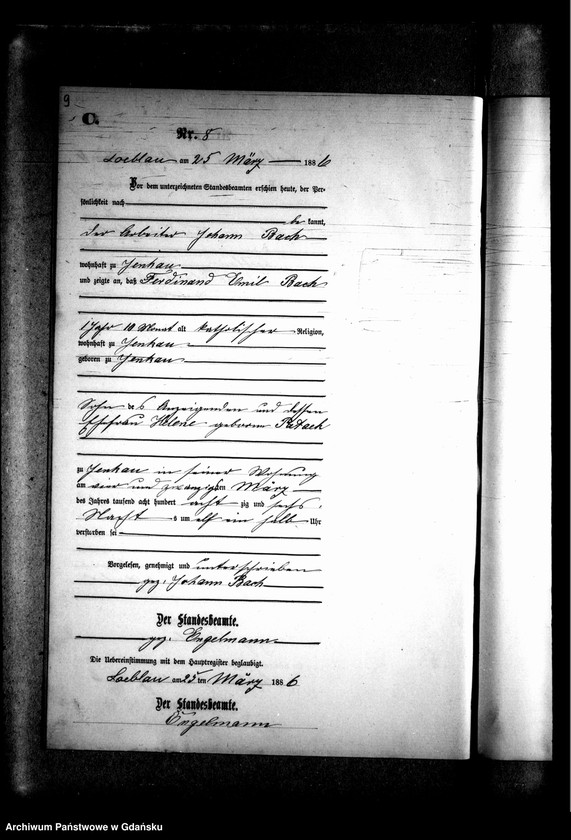 9
C.
Nr. 8
Loeblau am 25 März 1886
Vor dem unterzeichneten Standesbeamten erschien heute, der Per-
sönlichkeit nach
be kannt,
der Arbeiter Johann Bach
wohnhaft zu Jenkau
und zeigte an, daß Ferdinand Emil Bach
1 Jahr 10 Monat alt katholischer Religion,
wohnhaft zu Jenkau
geboren zu Jenkau
Sohn des Anzeigenden und dessen
Ehefrau Helene geborene
zu Jenkau in seiner Wohnung
am vier und zwanzigsten März
des Jahres tausend acht hundert acht zig und sechs
Nachts um elf ein halb Uhr
verstorben sei
Vorgelesen, genehmigt und unterschrieben
gez: Johann Bach
Der Standesbeamte.
gez: Engelmann
Die Uebereinstimmung mit dem Hauptregister beglaubigt.
Loeblau am 25 ten März 1886
Der Standesbeamte.
Engelmann
Archiwum Państwowe w Gdańsku